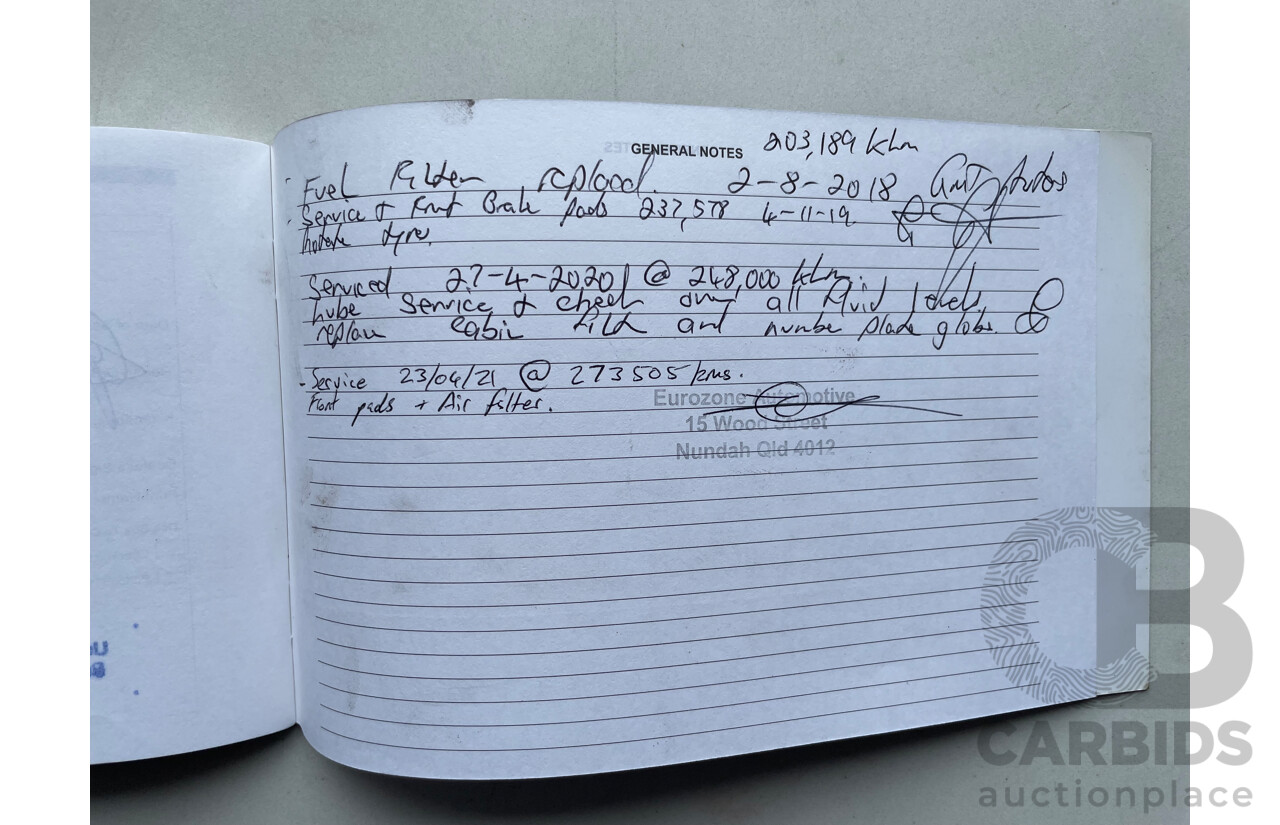 GENERAL NOTES 203,189 klm
Fuel Filter replaced. 2-8-2018 Autos
Service & Front Brake pads 237,578 4-11-19.
rotate tyres.
Serviced 27-4-2020 @ 248,000 klm.
lube Service & check over all fluid levels.
replace cabin filter and number plate globe.
- Service 23/04/21 @ 273505 kms.
Front pads + Air filter.
Eurozone Automotive
15 Wood Street
Nundah Qld 4012
CARBIDS
auctionplace